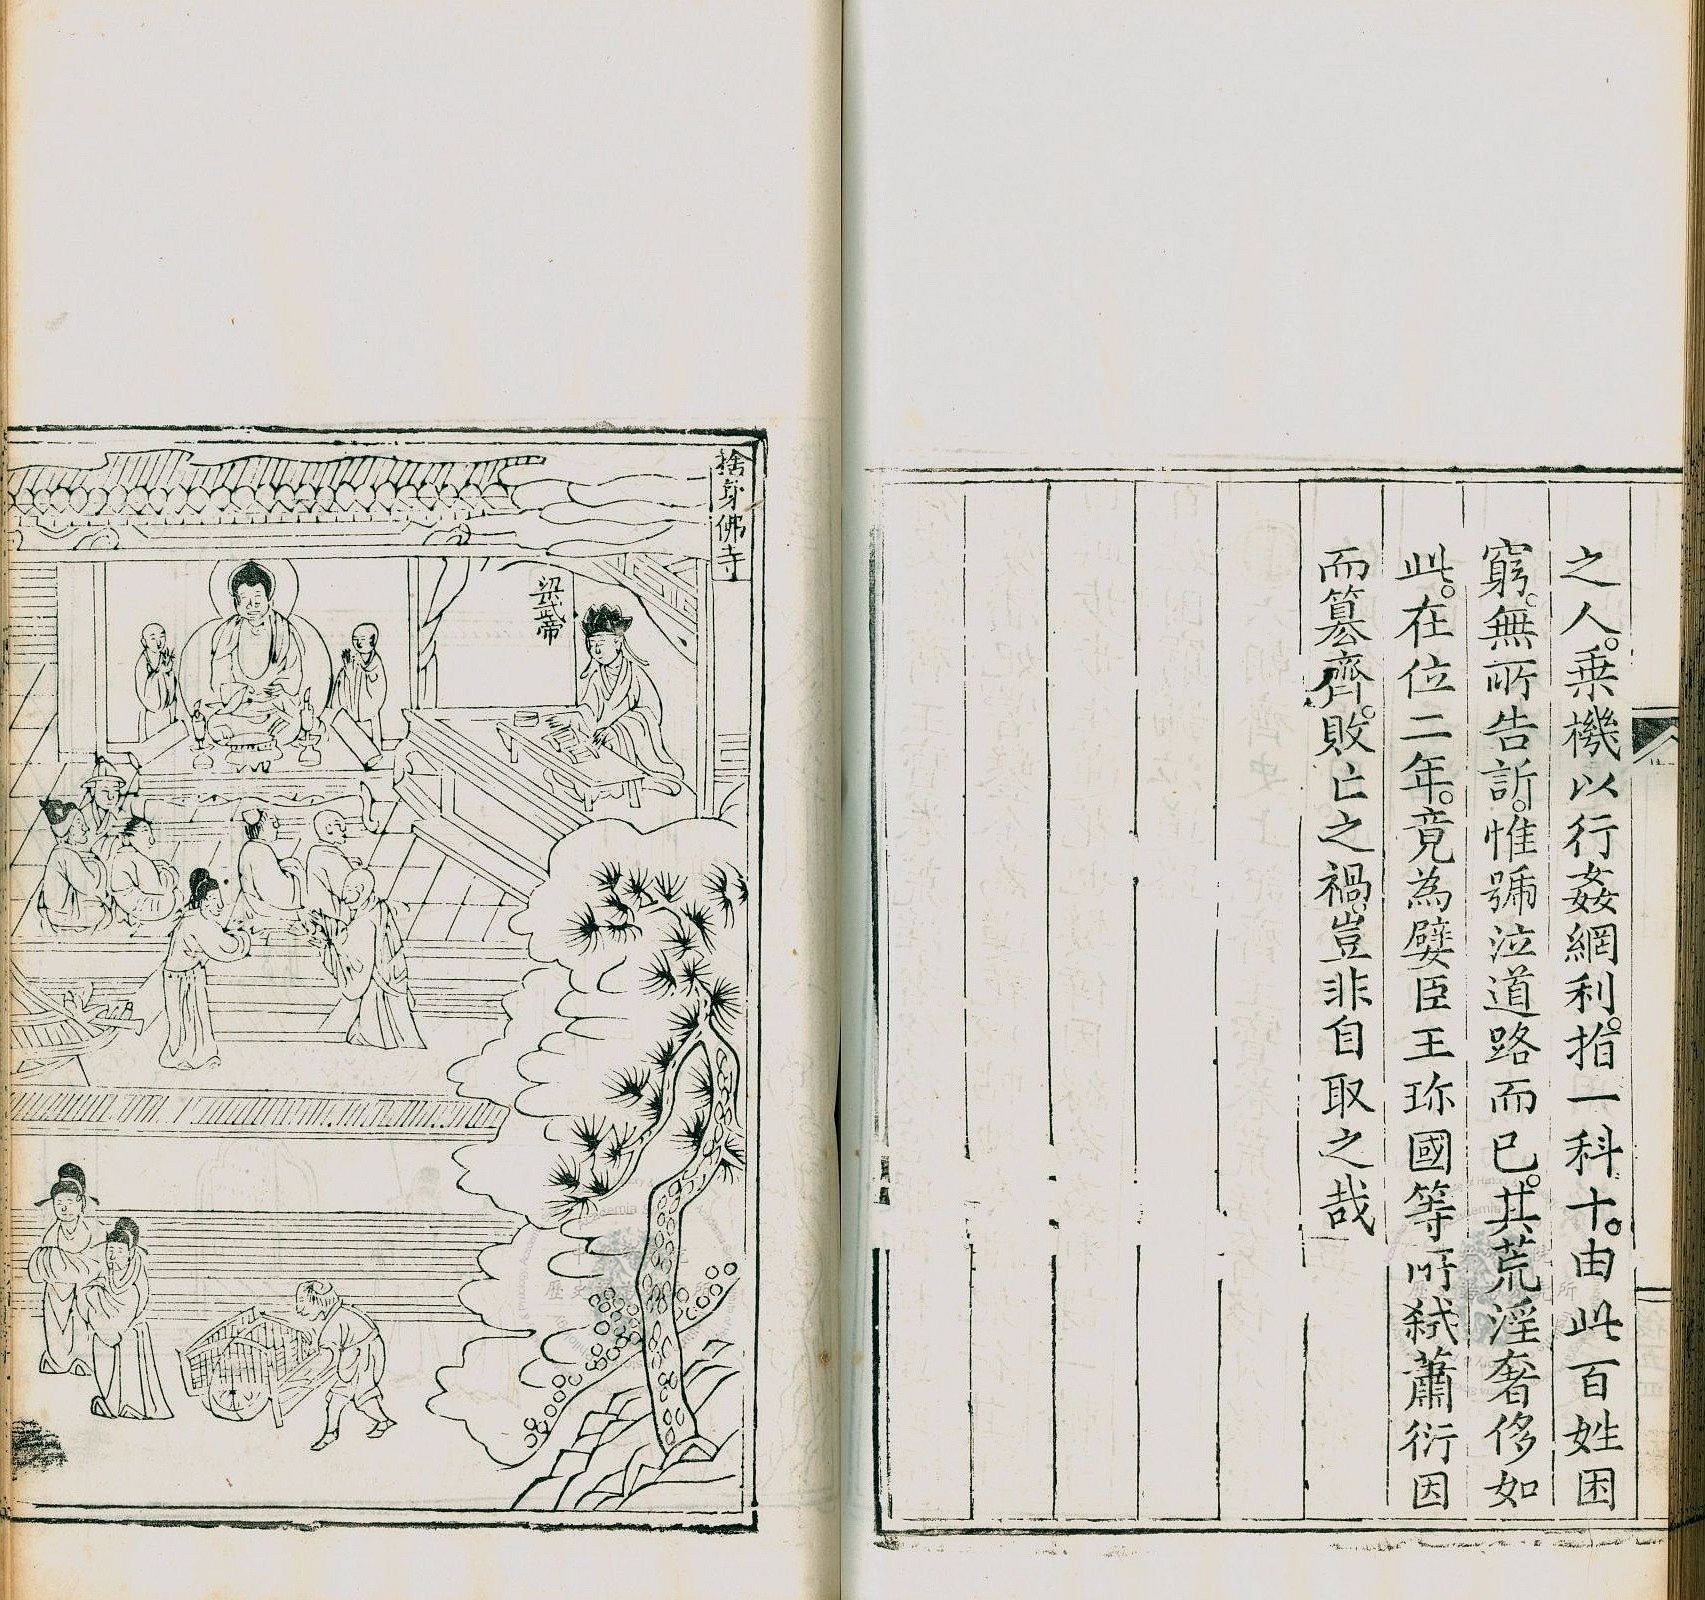 之人。乗機以行姦網利。指一科十。由此百姓困
窮。無所告訴。惟號泣道路而已。其荒淫奢侈如
此。在位二年。竟為嬖臣王珎國等所弒蕭衍因
而簒齊。敗亡之禍。豈非自取之哉
捨身佛寺
梁武帝